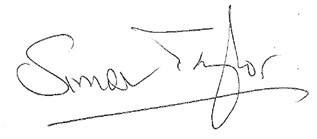 Simon Taylor